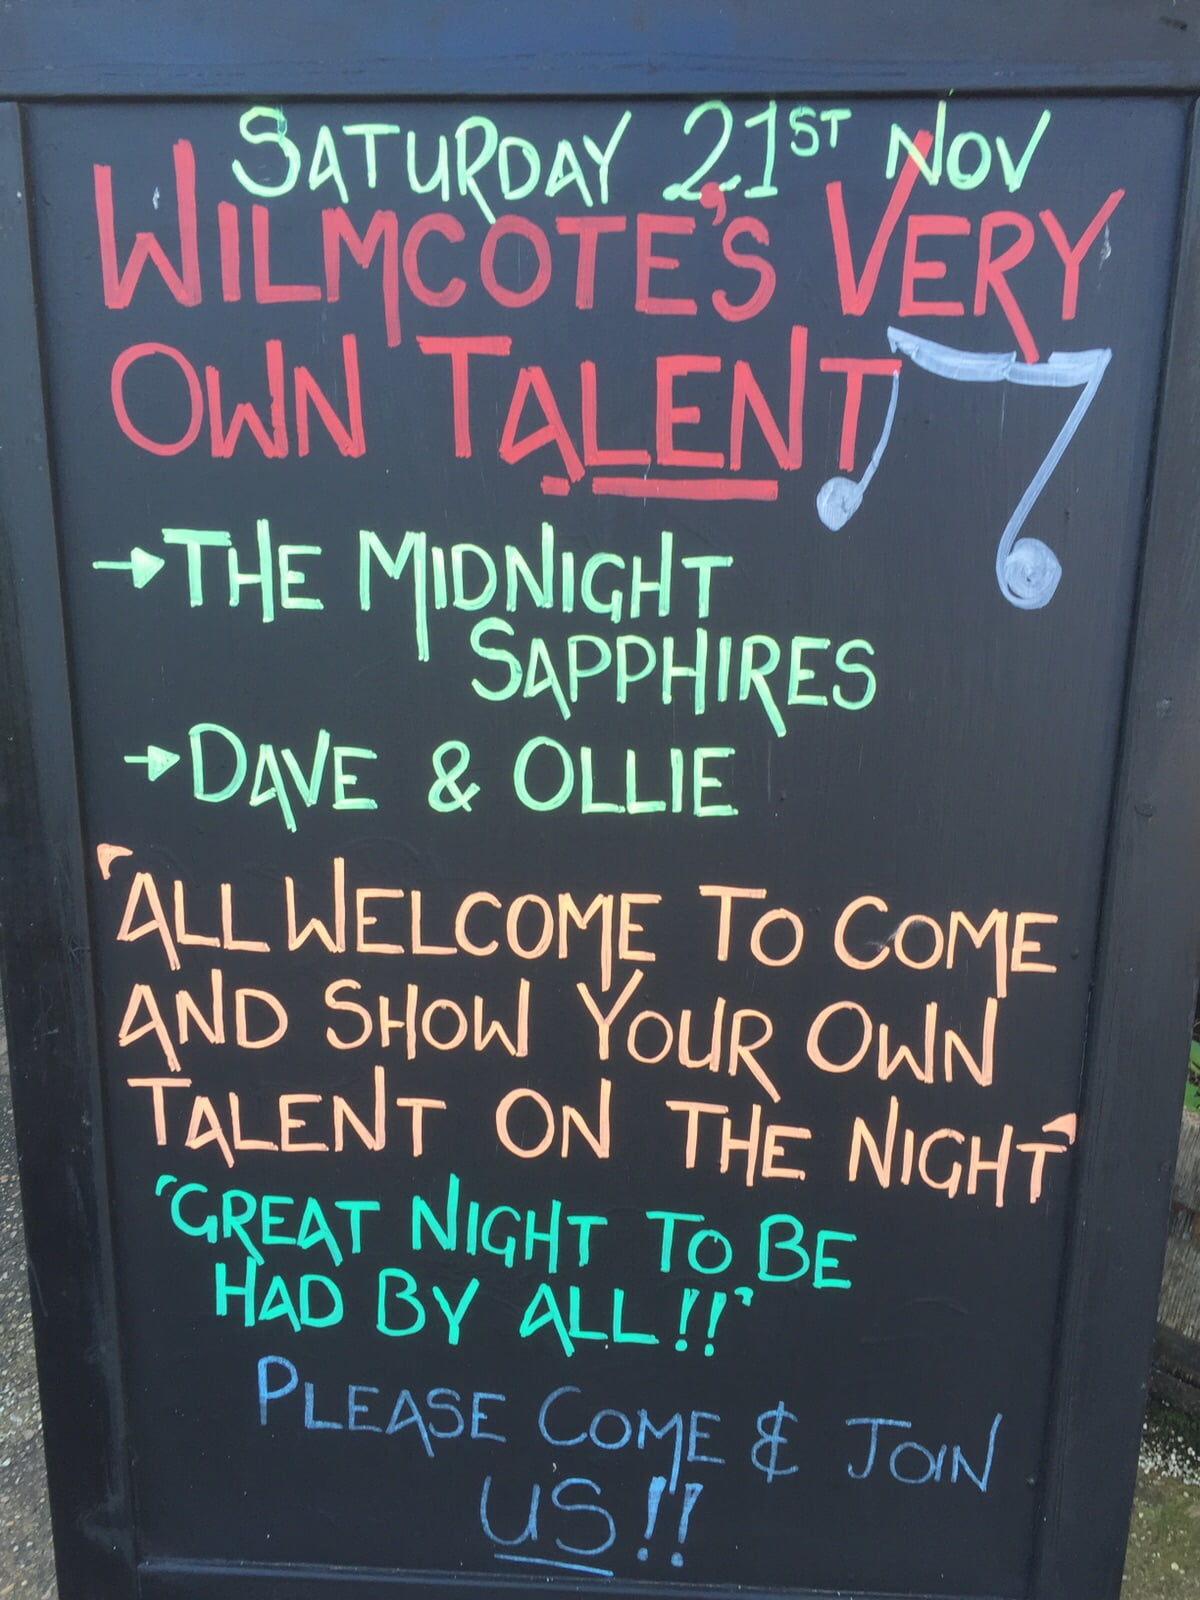 SATURDAY 21ST NOV
WILMCOTE'S VERY
OWN TALENT
→THE MIDNIGHT
SAPPHIRES
→DAVE & OLLIE
"ALL WELCOME TO COME
AND SHOW YOUR OWN
TALENT ON THE NIGHT"
"GREAT NIGHT TO BE
HAD BY ALL!!"
PLEASE COME & JOIN
US!!